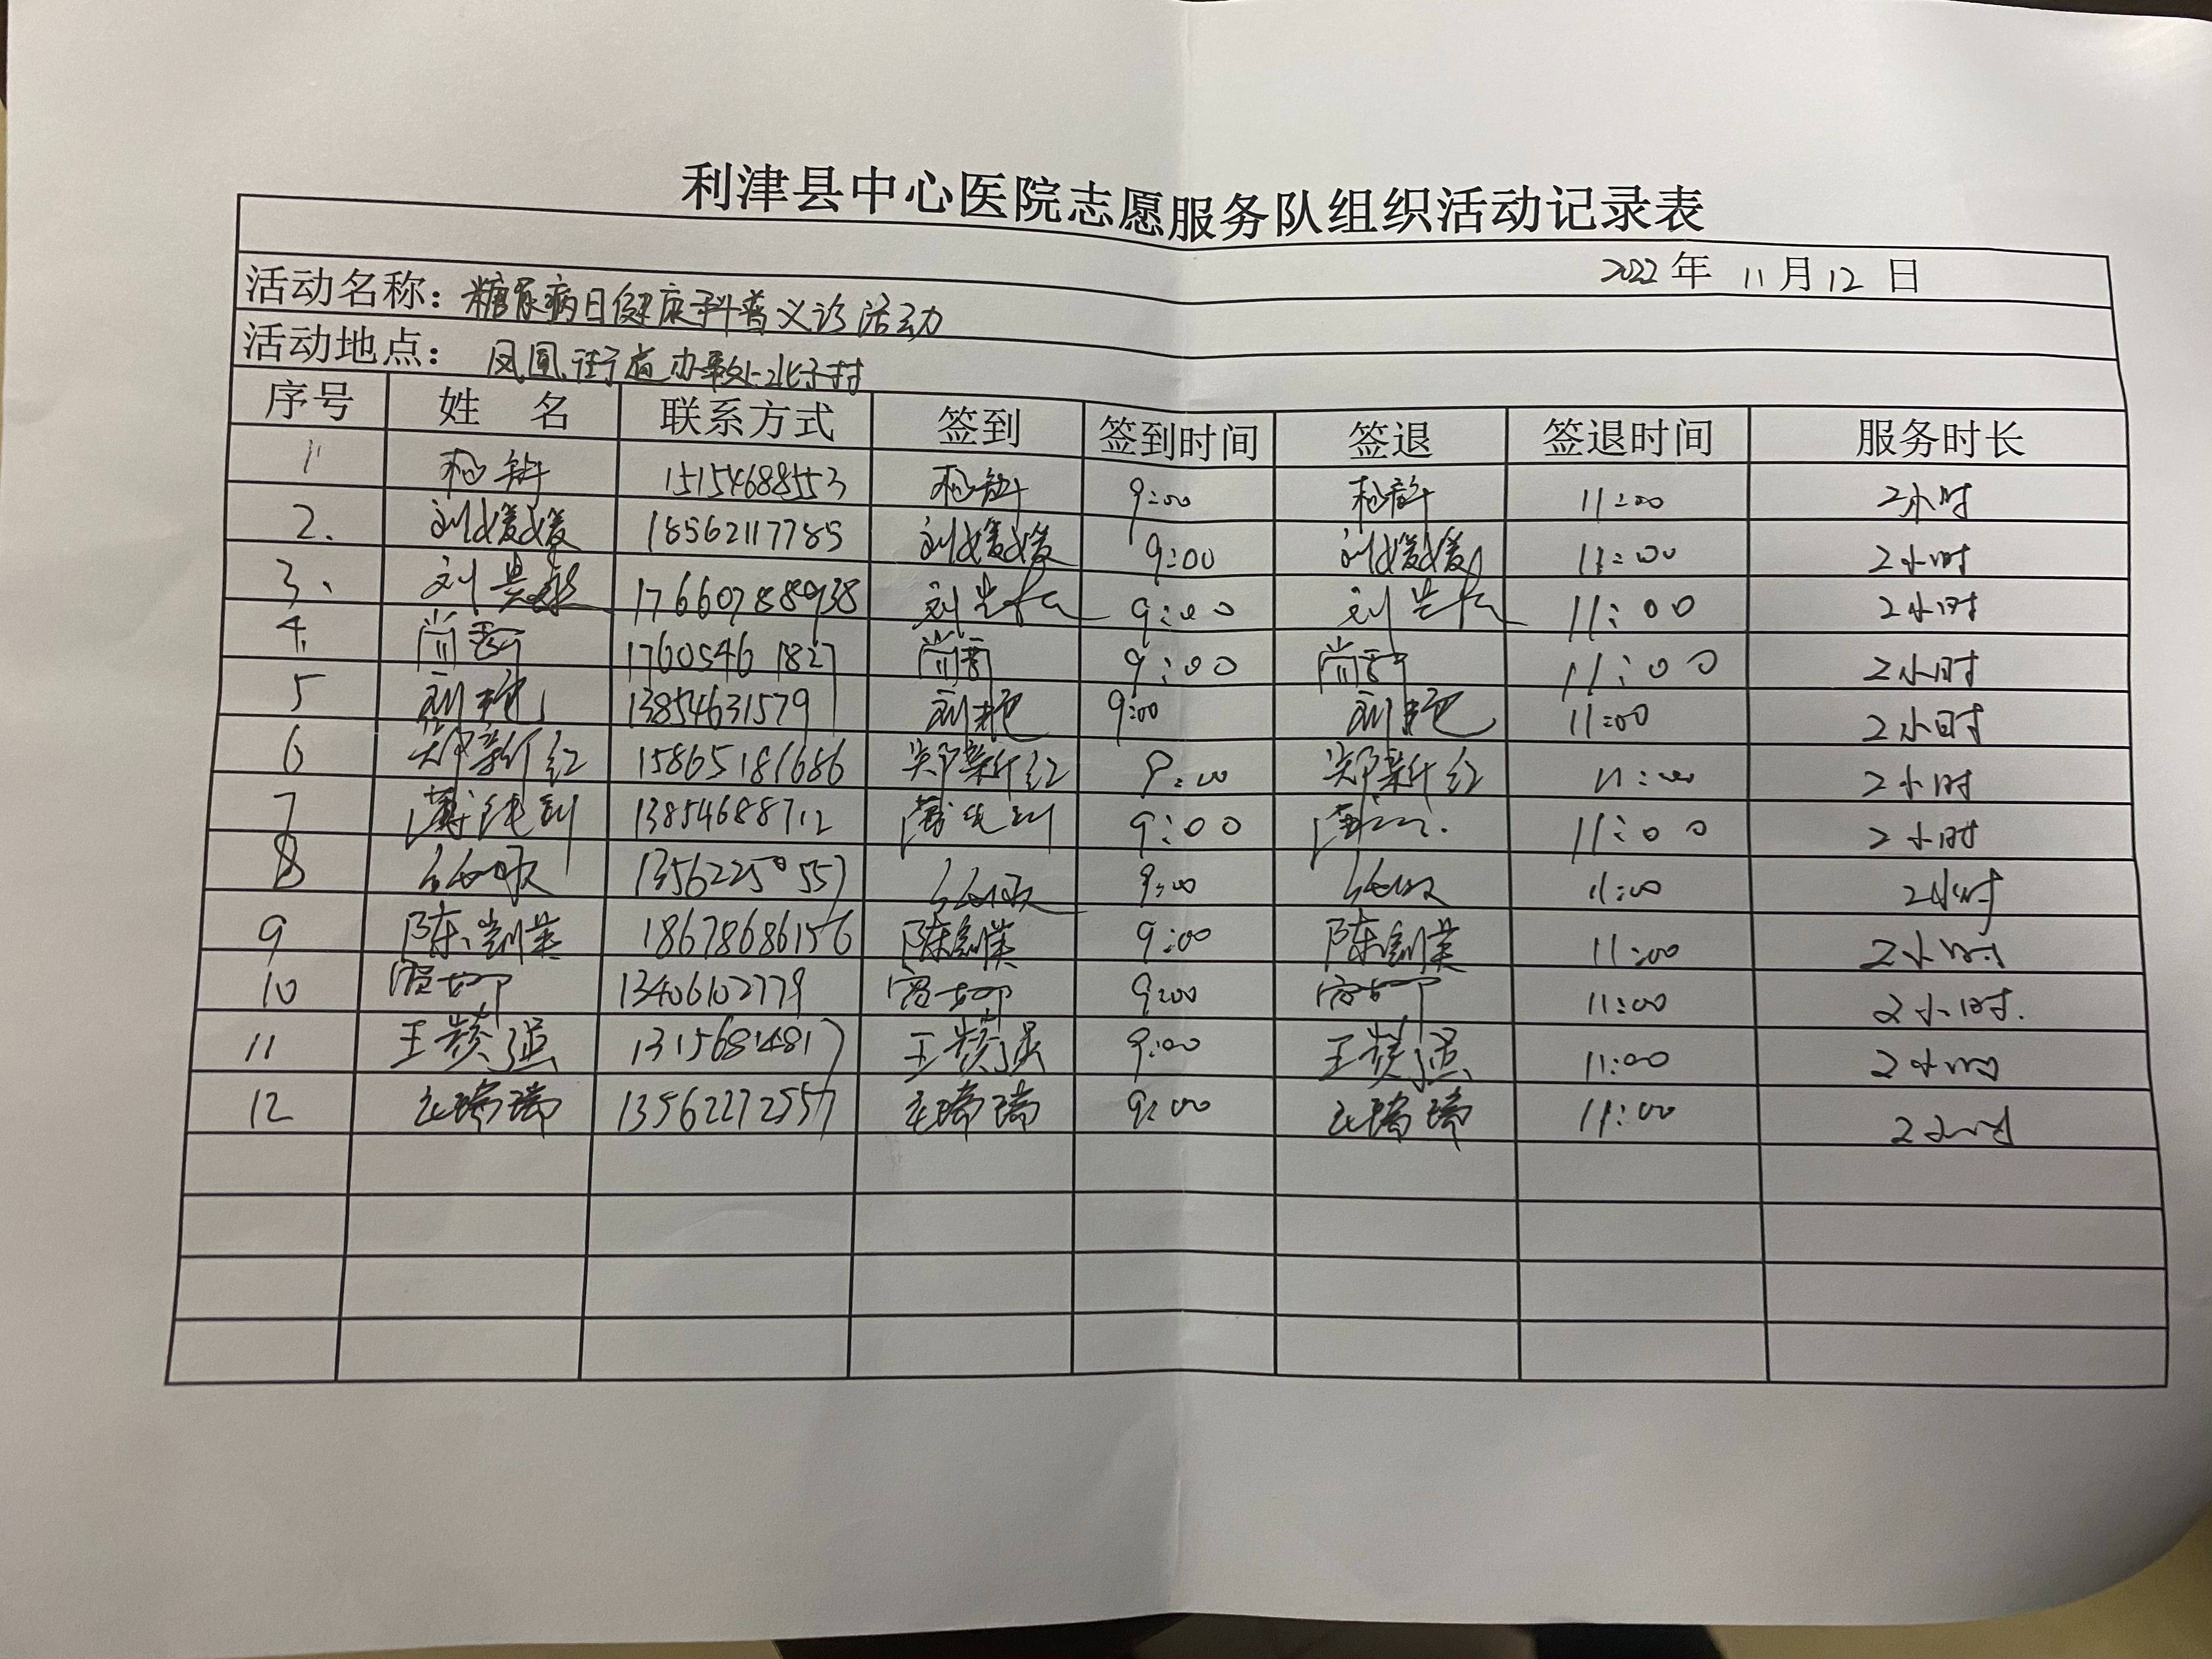 利津县中心医院志愿服务队组织活动记录表
2022年 11月12日
活动名称：糖尿病日健康科普义诊活动
活动地点：凤凰街道办事处北于村
序号 姓 名 联系方式 签到 签到时间 签退 签退时间 服务时长
1 15154688553 9:00 11:00 2小时
2、 刘媛媛 18562117785 刘媛媛 9:00 刘媛媛 11:00 2小时
3、 刘 17660788938 刘 9:00 刘 11:00 2小时
4、 尚 17605461827 尚 9:00 尚 11:00 2小时
5 刘艳 13854631579 刘艳 9:00 刘艳 11:00 2小时
6 郑新红 15865181686 郑新红 9:00 郑新红 11:00 2小时
7 薄纯利 13854688712 薄纯利 9:00 薄 11:00 2小时
8 13562250557 9:00 11:00 2小时
9 陈剑英 18678686156 陈剑英 9:00 陈剑英 11:00 2小时
10 13406102779 9:00 11:00 2小时.
11 王 强 13156814817 王 强 9:00 王 强 11:00 2小时
12 瑞瑞 13562272557 瑞瑞 9:00 瑞瑞 11:00 2小时